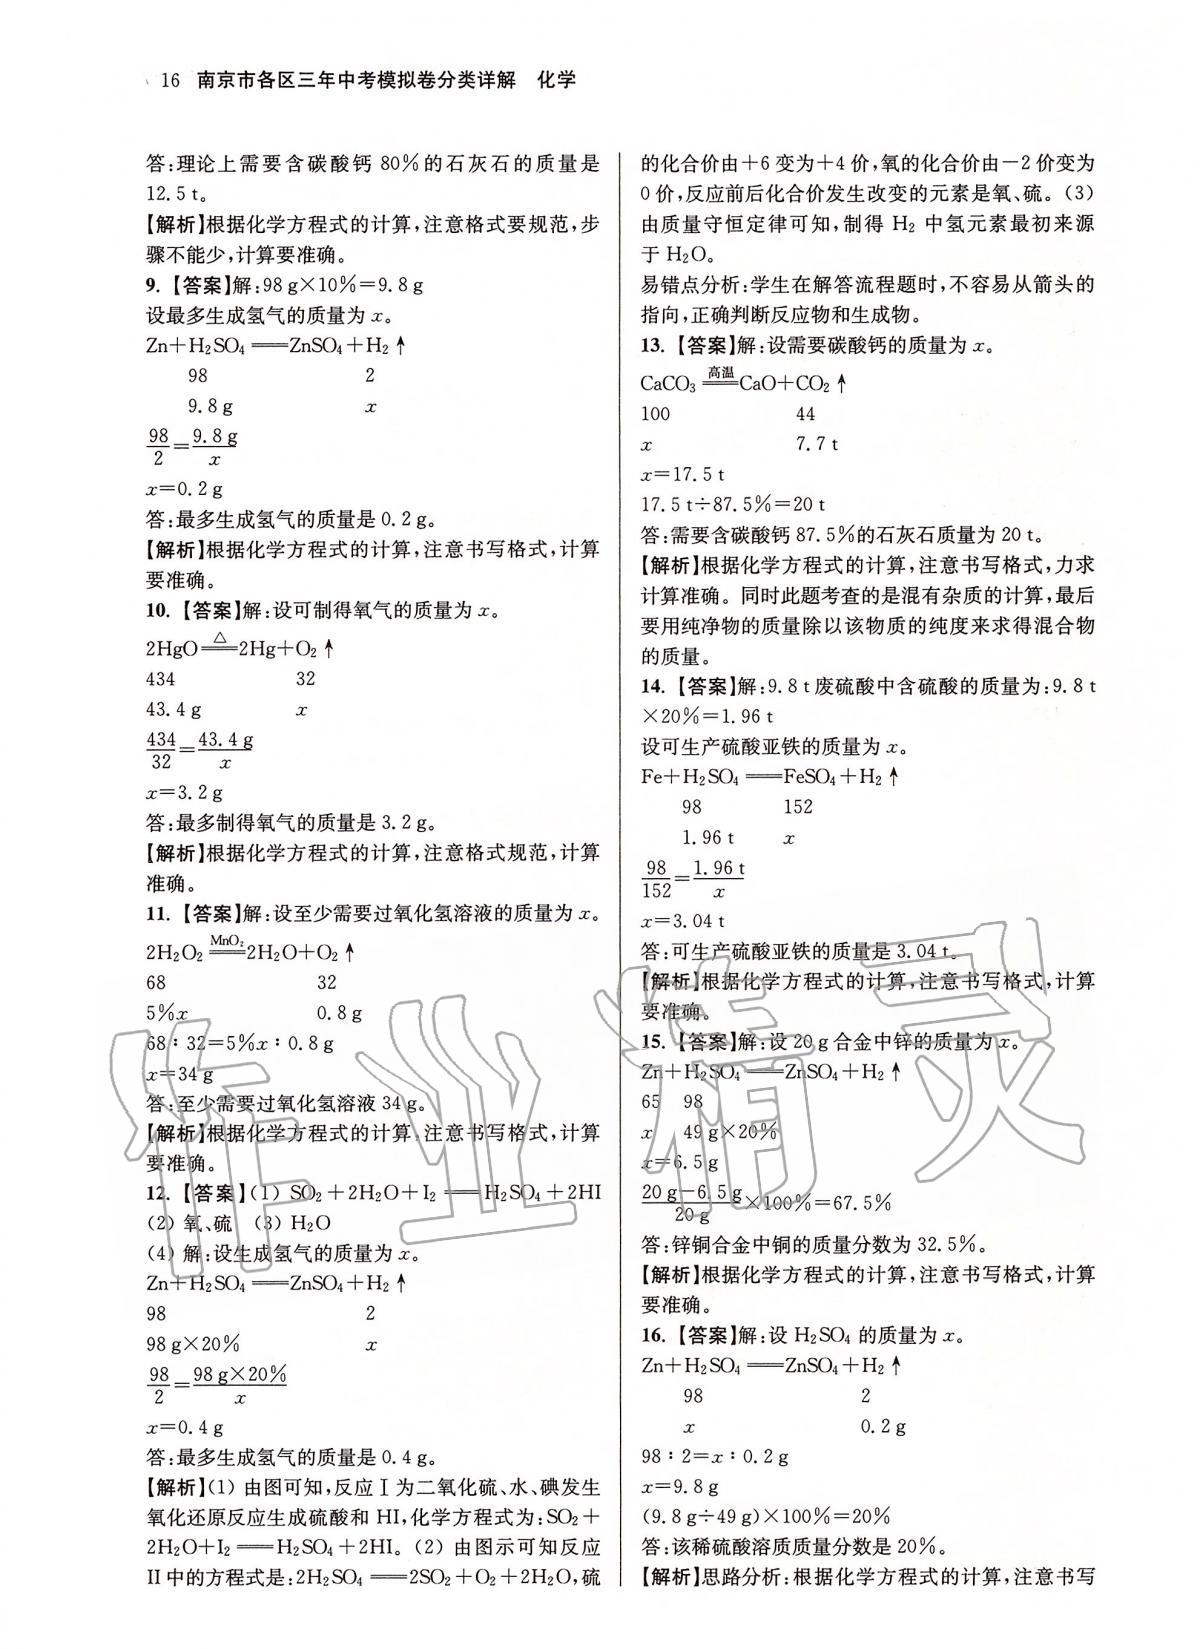 16 南京市各区三年中考模拟卷分类详解 化学
答:理论上需要含碳酸钙 80%的石灰石的质量是
12.5 t。
【解析】根据化学方程式的计算,注意格式要规范,步
骤不能少,计算要准确。
9. 【答案】解:98 g×10%=9.8 g
设最多生成氢气的质量为 x。
Zn+H₂SO₄══ZnSO₄+H₂↑
98 2
9.8 g x
98/2=9.8 g/x
x=0.2 g
答:最多生成氢气的质量是 0.2 g。
【解析】根据化学方程式的计算,注意书写格式,计算
要准确。
10. 【答案】解:设可制得氧气的质量为 x。
2HgO═△═2Hg+O₂↑
434 32
43.4 g x
434/32=43.4 g/x
x=3.2 g
答:最多制得氧气的质量是 3.2 g。
【解析】根据化学方程式的计算,注意格式规范,计算
准确。
11. 【答案】解:设至少需要过氧化氢溶液的质量为 x。
2H₂O₂═MnO₂═2H₂O+O₂↑
68 32
5%x 0.8 g
68∶32=5%x∶0.8 g
x=34 g
答:至少需要过氧化氢溶液 34 g。
【解析】根据化学方程式的计算,注意书写格式,计算
要准确。
12. 【答案】(1) SO₂+2H₂O+I₂══H₂SO₄+2HI
(2) 氧、硫 (3) H₂O
(4) 解:设生成氢气的质量为 x。
Zn+H₂SO₄══ZnSO₄+H₂↑
98 2
98 g×20% x
98/2=98 g×20%/x
x=0.4 g
答:最多生成氢气的质量是 0.4 g。
【解析】(1) 由图可知,反应Ⅰ为二氧化硫、水、碘发生
氧化还原反应生成硫酸和 HI,化学方程式为:SO₂+
2H₂O+I₂══H₂SO₄+2HI。(2) 由图示可知反应
Ⅱ中的方程式是:2H₂SO₄══2SO₂+O₂+2H₂O,硫
的化合价由+6 变为+4 价,氧的化合价由-2 价变为
0 价,反应前后化合价发生改变的元素是氧、硫。(3)
由质量守恒定律可知,制得 H₂ 中氢元素最初来源
于 H₂O。
易错点分析:学生在解答流程题时,不容易从箭头的
指向,正确判断反应物和生成物。
13. 【答案】解:设需要碳酸钙的质量为 x。
CaCO₃═高温═CaO+CO₂↑
100 44
x 7.7 t
x=17.5 t
17.5 t÷87.5%=20 t
答:需要含碳酸钙 87.5%的石灰石质量为 20 t。
【解析】根据化学方程式的计算,注意书写格式,力求
计算准确。同时此题考查的是混有杂质的计算,最后
要用纯净物的质量除以该物质的纯度来求得混合物
的质量。
14. 【答案】解:9.8 t 废硫酸中含硫酸的质量为:9.8 t
×20%=1.96 t
设可生产硫酸亚铁的质量为 x。
Fe+H₂SO₄══FeSO₄+H₂↑
98 152
1.96 t x
98/152=1.96 t/x
x=3.04 t
答:可生产硫酸亚铁的质量是 3.04 t。
【解析】根据化学方程式的计算,注意书写格式,计算
要准确。
15. 【答案】解:设 20 g 合金中锌的质量为 x。
Zn+H₂SO₄══ZnSO₄+H₂↑
65 98
x 49 g×20%
x=6.5 g
20 g-6.5 g/20 g×100%=67.5%
答:锌铜合金中铜的质量分数为 32.5%。
【解析】根据化学方程式的计算,注意书写格式,计算
要准确。
16. 【答案】解:设 H₂SO₄ 的质量为 x。
Zn+H₂SO₄══ZnSO₄+H₂↑
98 2
x 0.2 g
98∶2=x∶0.2 g
x=9.8 g
(9.8 g÷49 g)×100%=20%
答:该稀硫酸溶质质量分数是 20%。
【解析】思路分析:根据化学方程式的计算,注意书写
作业精灵